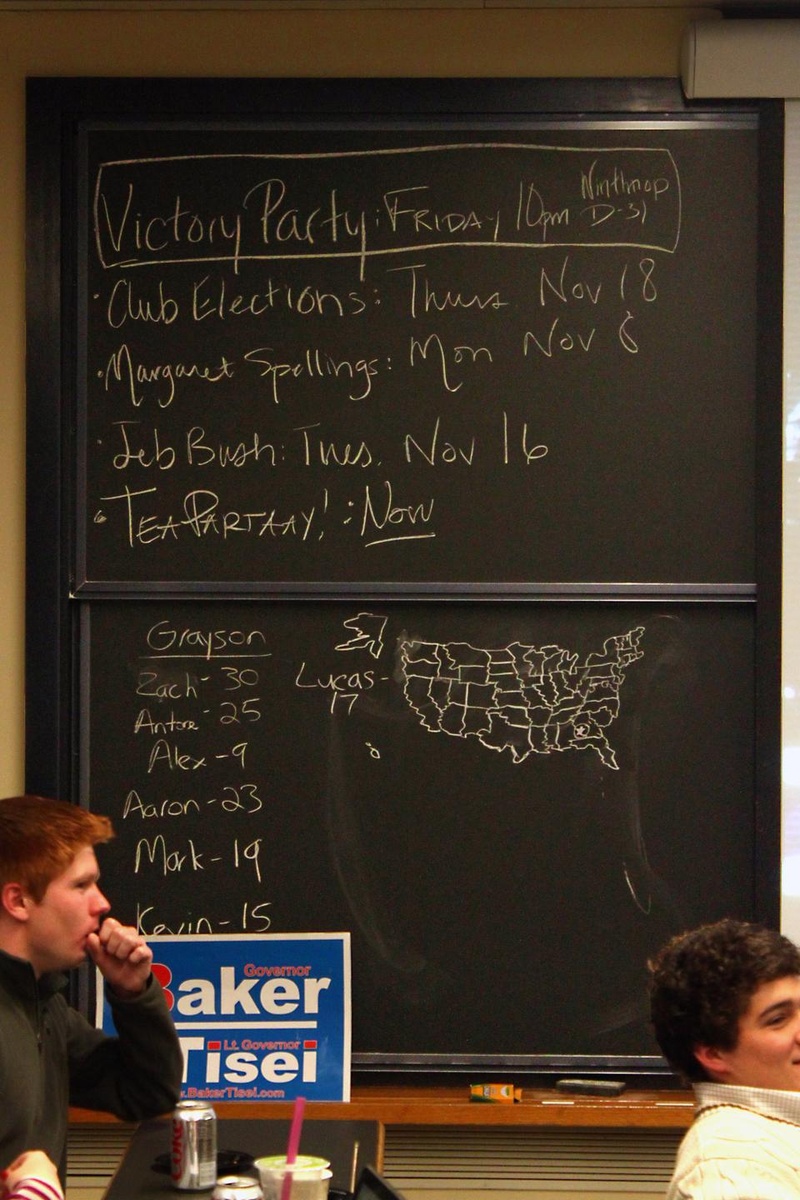 Victory Party: FRIDAY 10pm Winthrop D-31
· Club Elections: Thurs Nov 18
· Margaret Spellings: Mon Nov 8
· Jeb Bush: Tues. Nov 16
· TEA PARTAAY! : Now
Grayson
Zach - 30
Antone - 25
Alex - 9
Aaron - 23
Mark - 19
Kevin - 15
Lucas -
17
Governor
Baker
Lt. Governor
Tisei
.BakerTisei.com
COKE